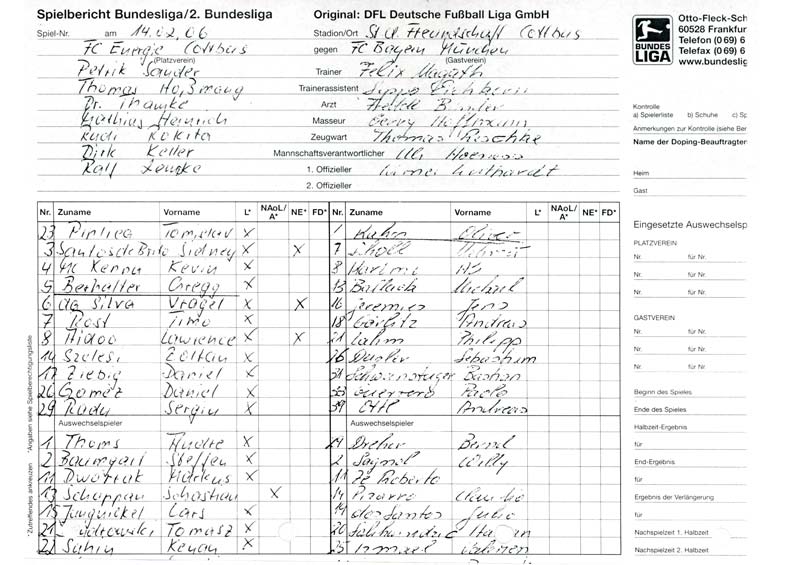 Spielbericht Bundesliga/2. Bundesliga Original: DFL Deutsche Fußball Liga GmbH
Spiel-Nr. am 14.02.06 Stadion/Ort St d. Freundschaft Cottbus
FC Energie Cottbus gegen FC Bayern München
(Platzverein) (Gastverein)
Petrik Sander Trainer Felix Magath
Thomas Trainerassistent
Dr. Arzt
Mathias Heinrich Masseur Gerry Hoffmann
Rudi Kokita Zeugwart Thomas
Dirk Keller Mannschaftsverantwortlicher Uli Hoeness
Ralf Lempke 1. Offizieller
2. Offizieller
Nr. Zuname Vorname L* NAoL/A* NE* FD* Nr. Zuname Vorname L* NAoL/A* NE* FD*
23 Piplica Tomislav X 1 Kahn Oliver
3 Santos de Brito Sidney X X 7 Scholl
4 Mc Kenna Kevin X 8 Karimi Ali
5 Berhalter Gregg X 13 Ballack Michael
6 da Silva Vragel X X 16 Jeremies Jens
7 Rost Timo X 18 Görlitz Andreas
8 Aidoo Lawrence X X 21 Lahm Philipp
14 Szelesi Zoltan X 26 Deisler Sebastian
17 Ziebig Daniel X 31 Schweinsteiger Bastian
20 Gomez Daniel X 33 Guerrero Paolo
29 Radu Sergiu X 39 Ottl Andreas
Auswechselspieler Auswechselspieler
1 Thoms Andre X 29 Dreher Bernd
2 Baumgart Steffen X 2 Sagnol Willy
11 Dworrak Markus X 11 Ze Roberto
13 Schuppan Sebastian X 14 Pizarro Claudio
15 Jungnickel Lars X 19 dos Santos Julio
21 Tomasz X 20 Salihamidzic Hasan
22 Sahin Kenan X 25 Ismael Valerien
*Zutreffendes ankreuzen *Angaben siehe Spielberechtigungsliste
BUNDES
LIGA
Otto-Fleck-Sch
60528 Frankfur
Telefon (0 69) 6
Telefax (0 69) 6
www.bundeslig
Kontrolle
a) Spielerliste b) Schuhe c) Sp
Anmerkungen zur Kontrolle (siehe Ber
Name der Doping-Beauftragter
Heim
Gast
Eingesetzte Auswechselsp
PLATZVEREIN
Nr. für Nr.
Nr. für Nr.
Nr. für Nr.
GASTVEREIN
Nr. für Nr.
Nr. für Nr.
Nr. für Nr.
Beginn des Spieles
Ende des Spieles
Halbzeit-Ergebnis
für
End-Ergebnis
für
Ergebnis der Verlängerung
für
Nachspielzeit 1. Halbzeit
Nachspielzeit 2. Halbzeit